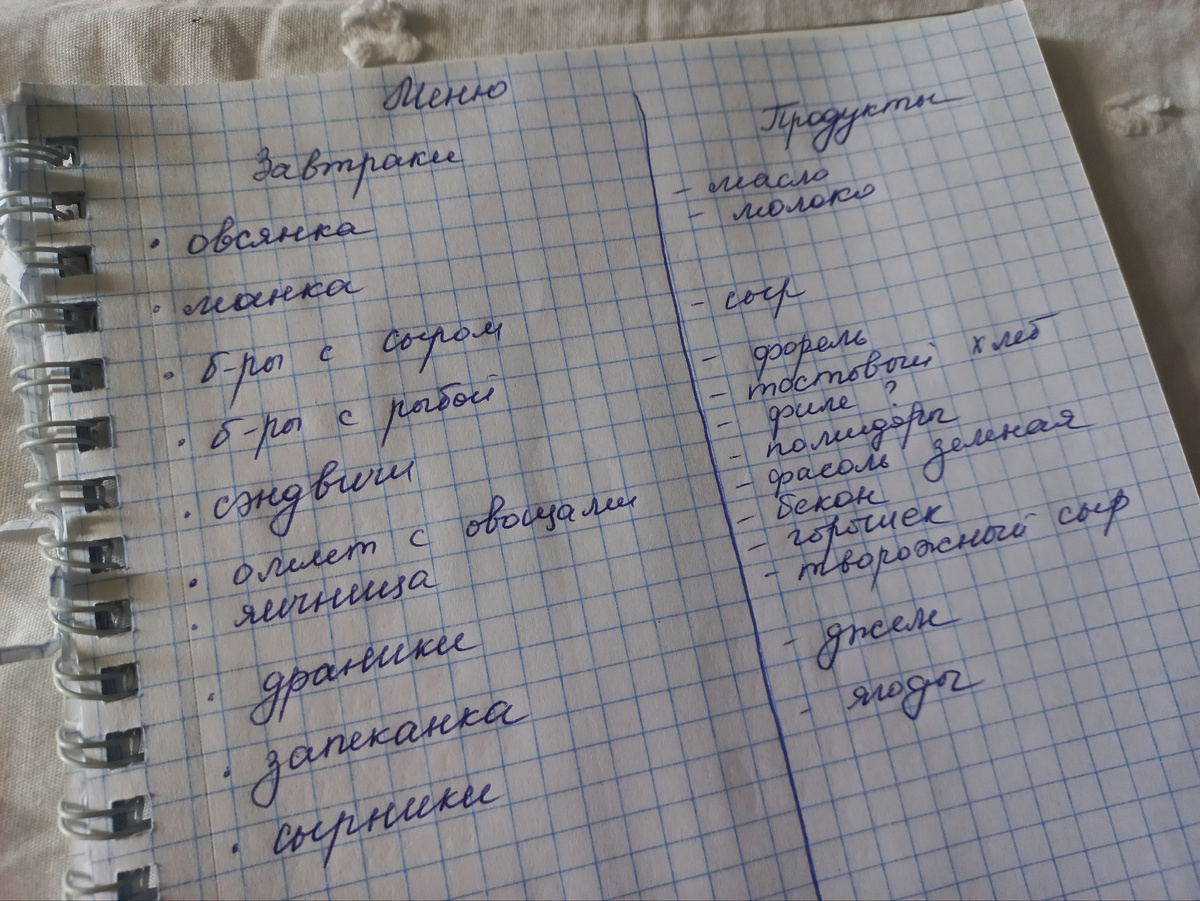 Меню
Завтраки
• овсянка
• манка
• б-ры с сыром
• б-ры с рыбой
• сэндвичи
• омлет с овощами
• яичница
• драники
• запеканка
• сырники
Продукты
- масло
- молоко
- сыр
- форель
- тостовый хлеб
- филе ?
- помидоры
- фасоль зеленая
- бекон
- горошек
- творожный сыр
- джем
- ягоды